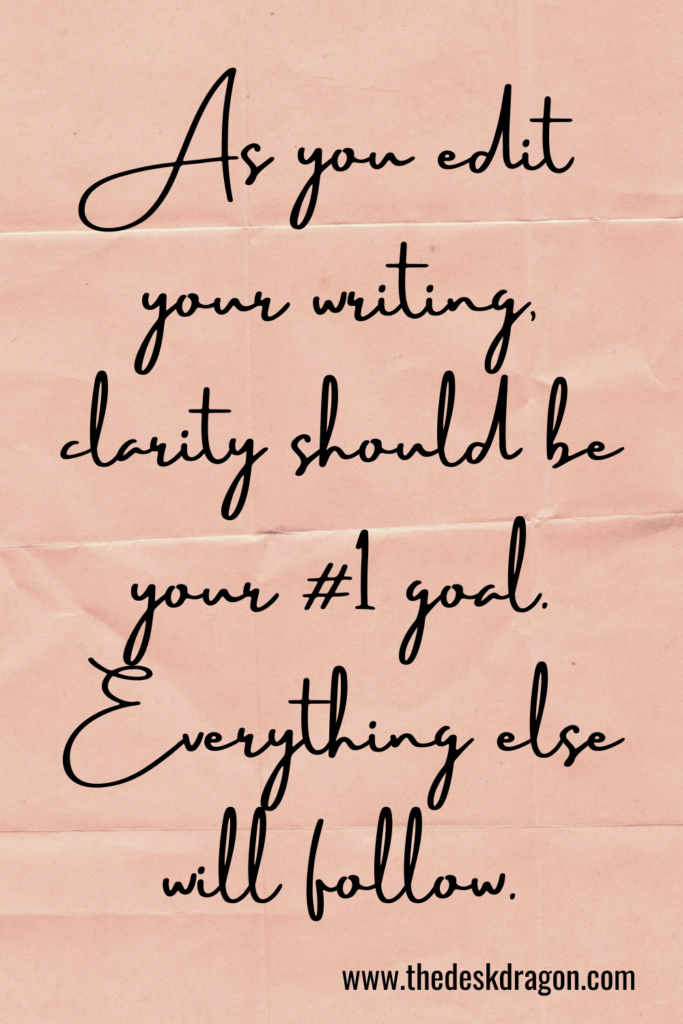 As you edit
your writing,
clarity should be
your #1 goal.
Everything else
will follow.
www.thedeskdragon.com